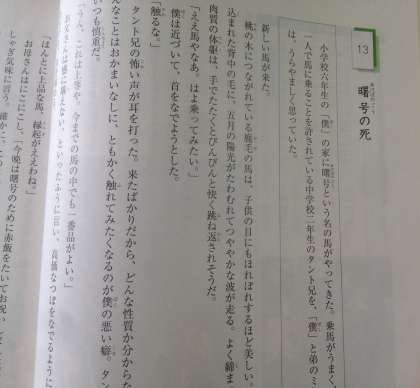 13
曙号の死
小学校六年生の「僕」の家に曙号という名の馬がやってきた。乗馬がうまく、
一人で馬に乗ることを許されている中学校二年生のタント兄を、「僕」と弟のミ
は、うらやましく思っていた。
新しい馬が来た。
桃の木につながれている鹿毛の馬は、子供の目にもほれぼれするほど美しい。
込まれた背中の毛に、五月の陽光がたわむれてつややかな波が走る。よく締ま
肉質の体軀は、手でたたくとぴんぴんと快く跳ね返されそうだ。
「ええ馬やなあ。はよ乗ってみたい。」
僕は近づいて、首をなでようとした。
「触るな。」
タント兄の怖い声が耳を打った。来たばかりだから、どんな性質か分からな
んなことはおかまいなしに、ともかく触れてみたくなるのが僕の悪い癖。タン
いつも慎重だ。
「うん、これは上等や。今までの馬の中でも一番品がよい。」
お父さんは感に堪えない、といったふうに言い、高価なつぼをなでるように
「ほんとに上品な馬。縁起がええわね。」
お母さんはにこにこし、「今晩は曙号のために赤飯をたいてお祝い
しゃぎ気味に言う。確かに、この